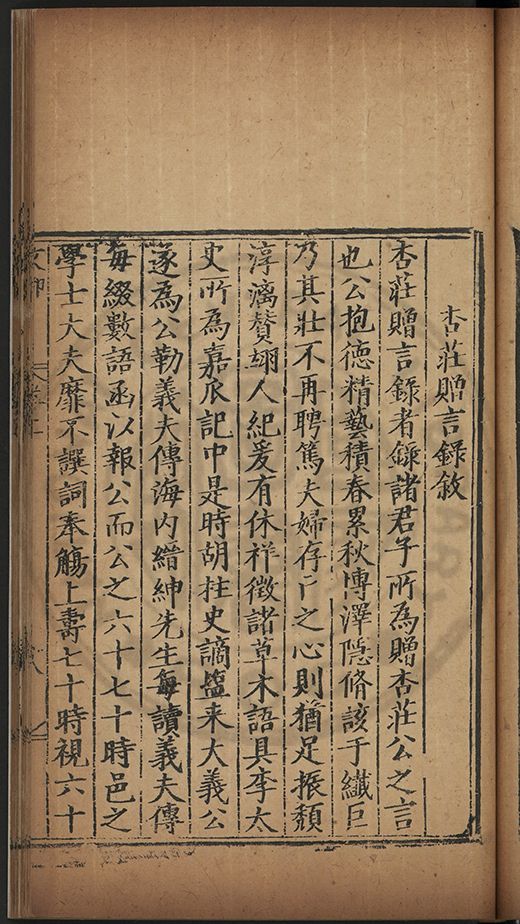 杏莊贈言錄敘
杏莊贈言錄者錄諸君子所為贈杏莊公之言
也公抱德精藝積春累秋博澤隱脩該于纖巨
乃其壯不再聘篤夫婦存亡之心則猶足振頹
淳漓贊翊人紀爰有休祥徵諸草木語具李太
史所為嘉瓜記中是時胡柱史謫盬来大義公
遂為公勒義夫傳海内縉紳先生每讀義夫傳
每綴數語函以報公而公之六十七十時邑之
學士大夫靡不譔詞奉觴上壽七十時視六十